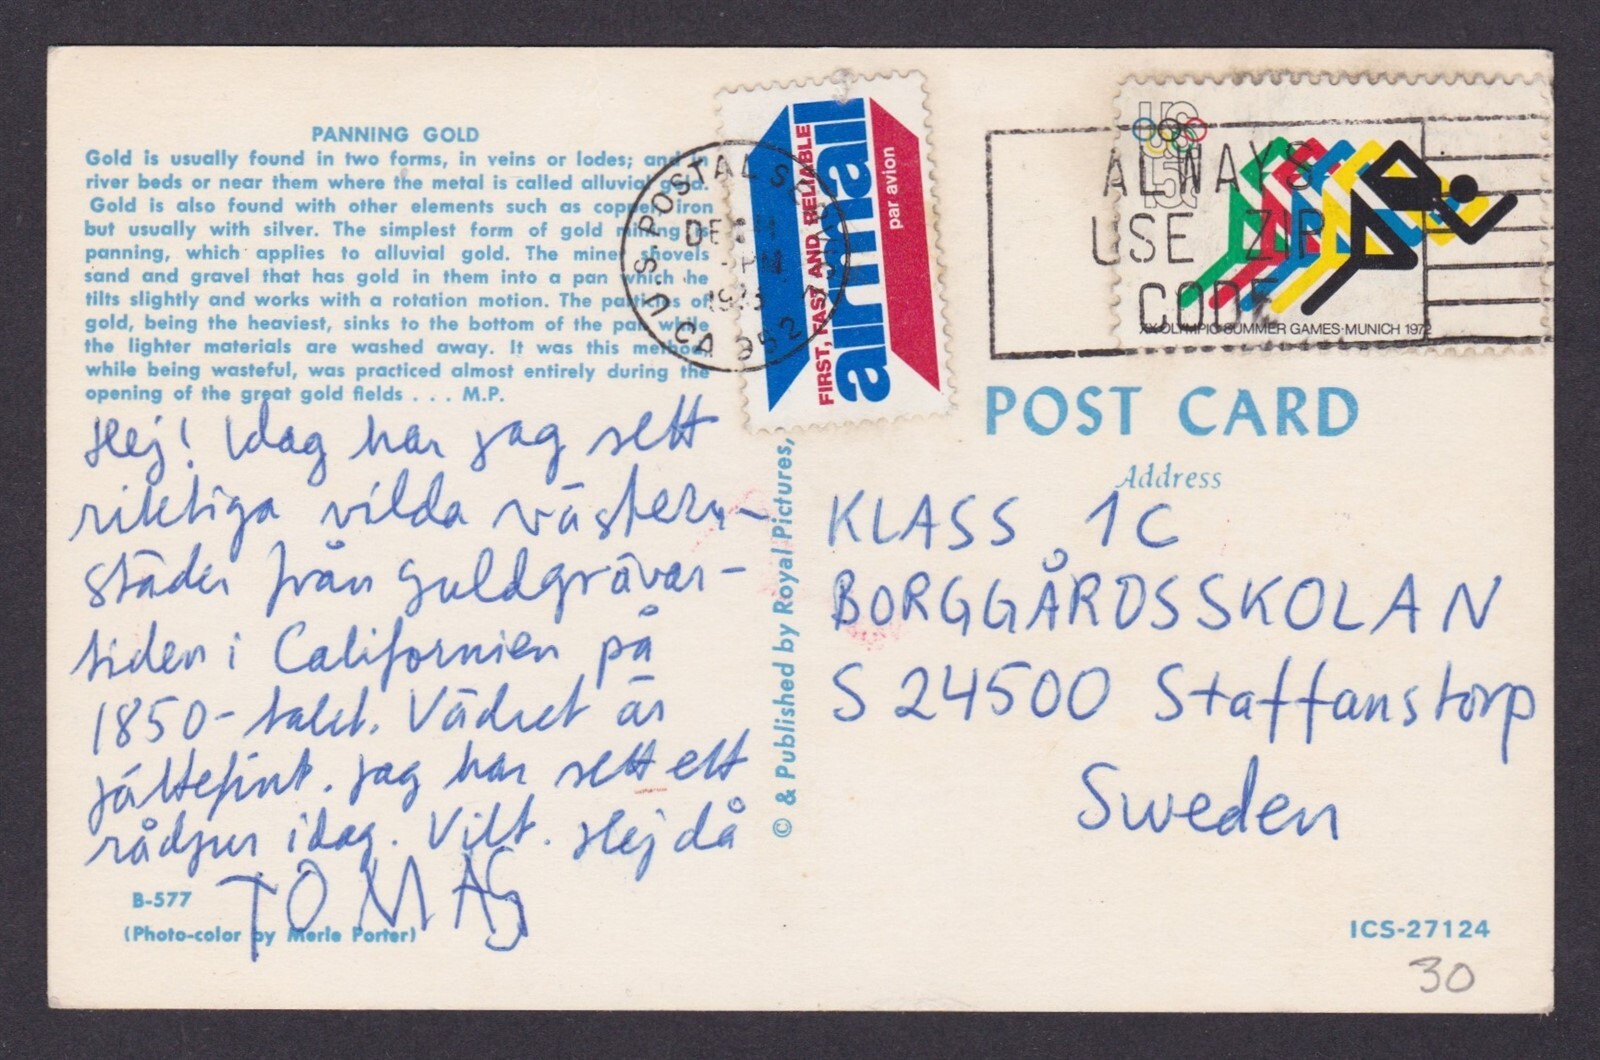 PANNING GOLD
Gold is usually found in two forms, in veins or lodes; and in
river beds or near them where the metal is called alluvial gold.
Gold is also found with other elements such as copper, iron
but usually with silver. The simplest form of gold mining is
panning, which applies to alluvial gold. The miner shovels
sand and gravel that has gold in them into a pan which he
tilts slightly and works with a rotation motion. The particles of
gold, being the heaviest, sinks to the bottom of the pan while
the lighter materials are washed away. It was this method,
while being wasteful, was practiced almost entirely during the
opening of the great gold fields . . . M.P.
Hej! Idag har jag sett
riktiga vilda västern-
städer från guldgrävar-
tiden i Californien på
1850-talet. Vädret är
jättefint. Jag har sett ett
rådjur idag. Vilt. Hej då
TOMAS
B-577
(Photo-color by Merle Porter)
© & Published by Royal Pictures,
FIRST, FAST AND RELIABLE
airmail
par avion
U.S. POSTAL
DE
PM
1973
CA 952
US
15c
XX OLYMPIC SUMMER GAMES·MUNICH 1972
ALWAYS
USE ZIP
CODE
POST CARD
Address
KLASS 1C
BORGGÅRDSSKOLAN
S 24500 Staffanstorp
Sweden
ICS-27124
30